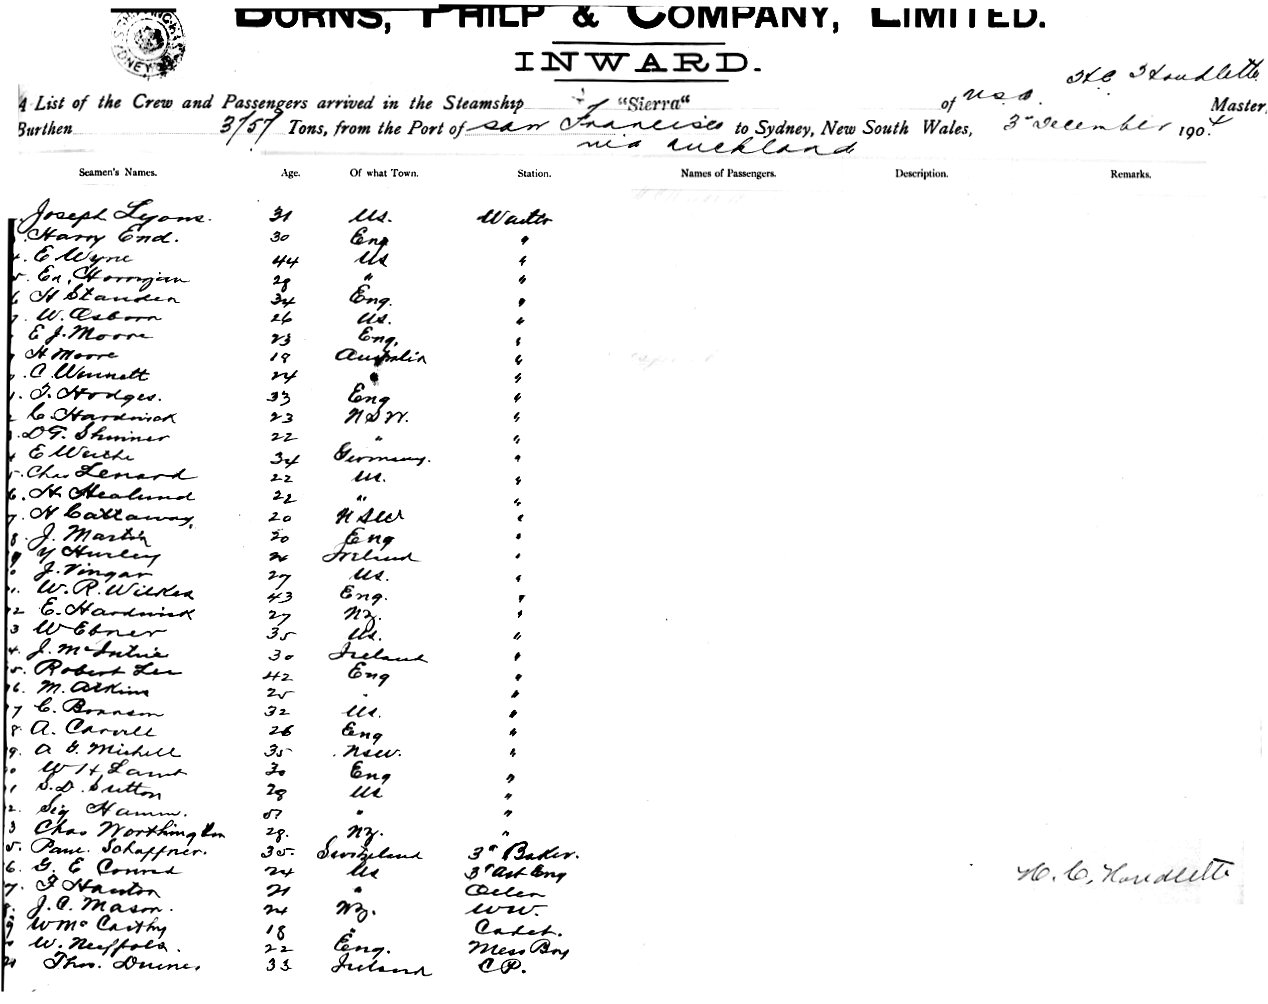 BURNS, PHILP & COMPANY, LIMITED.
INWARD.
A List of the Crew and Passengers arrived in the Steamship "Sierra" of U.S.A. H.C. Houdlette Master,
Burthen 3157 Tons, from the Port of San Francisco to Sydney, New South Wales, 3rd December 1904
via Auckland
Seamen's Names. Age. Of what Town. Station. Names of Passengers. Description. Remarks.
Joseph Lyons. 31 US. Waiter
3. Harry End. 30 Eng "
4. E Wyne 44 US "
5. 28 " "
6 H Standen 34 Eng. "
7. W. Osborn 26 US. "
E J. Moore 23 Eng. "
H Moore 19 Australia "
C Wennett 24 " "
1. T. Hodges. 33 Eng "
2 C. Hardwick 23 NSW. "
3. D T. 22 " "
4 E 34 Germany. "
5. Chas Lenard 22 US. "
6. H 22 " "
7. H Callaway, 20 NSW "
8. J. Martin 20 Eng "
9 Y Hurley Ireland "
0 J. Vingar 27 US. "
1. W. R. Wilkes 43 Eng. "
2 E. Hardwick 27 NZ. "
3 W Ebner 35 US. "
4. J. McIntire 30 Ireland "
5. Robert Lee 42 Eng "
6. M. Atkins 25 " "
7 C. Brannan 32 US. "
8 A. Carvill 26 Eng "
9. A G. Michell 35 NSW. "
0 W H. Lamb 30 Eng "
1 S. D. Sutton 28 US "
2. Sig Hamm. " "
3 Chas Worthington 28. NZ. "
5. Paul Schaffner. 35. Switzeland 3rd Baker.
6. G. E Conrad 24 US 3rd Ast Eng H. C. Houdlette
7. F Hanton 21 " Oiler
8. J. C. Mason. 24 NZ. WW.
9 W McCarthy 18 " Cadet.
W. 22 Eng. Mess Boy
Thos. Duines 33 Ireland CP.